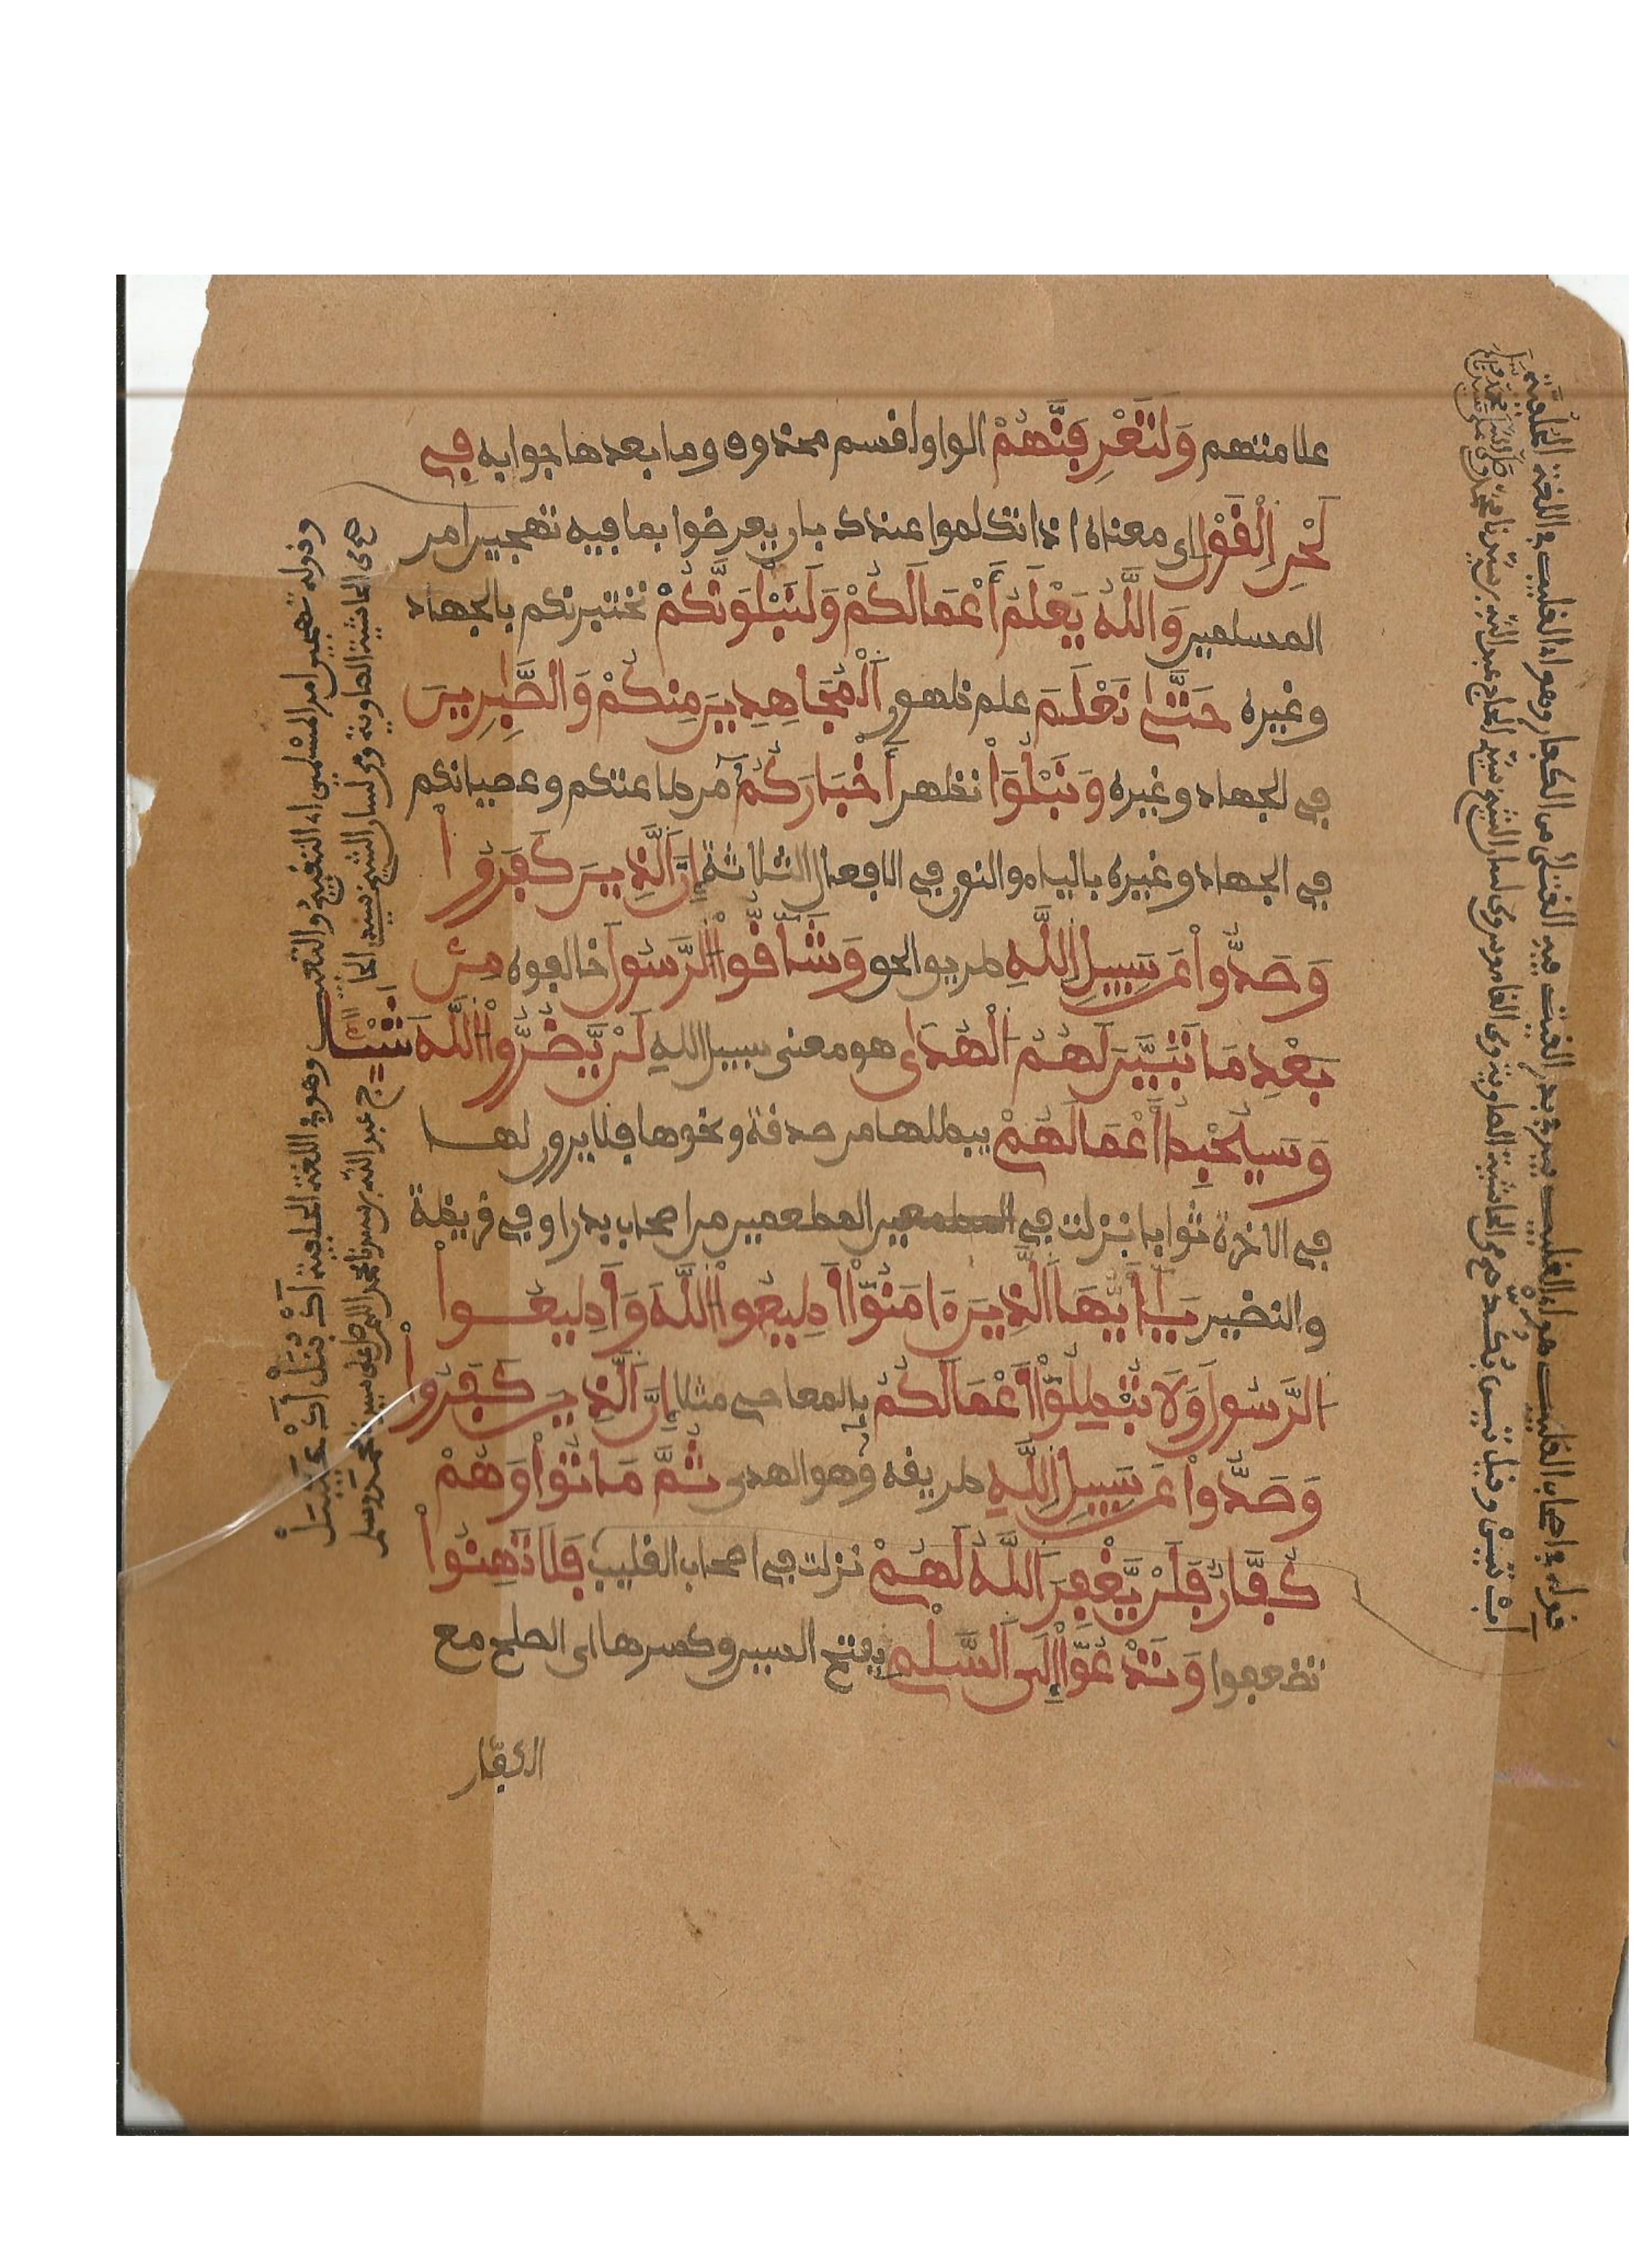 علامتهم وَلَتَعْرِفَنَّهُمْ الواو لقسم محذوف وما بعدها جوابه فِے
لَحْنِ اِلْقَوْلِ اي معناه اذا تكلموا عندك بان يعرضوا بما فيه تهجين امر
المسلمين وَاللَّهُ يَعْلَمُ أَعْمَالَكُمْ وَلَنَبْلُوَنَّكُمْ نختبرنكم بالجهاد
وغيره حَتَّىٰ نَعْلَمَ علم ظهور اَلْمُجَاهِدِينَ مِنكُمْ وَالصَّٰبِرِينَ
في الجهاد وغيره وَنَبْلُوَاْ نظهر أَخْبَارَكُمْ من طاعتكم وعصيانكم
في الجهاد وغيره بالياء والنون في الافعال الثلاثة إِنَّ اَلَّذِينَ كَفَرُواْ
وَصَدُّواْ عَن سَبِيلِ اِللَّهِ طريق الحق وَشَاقُّواْ اُلرَّسُولَ خالفوه مِنۢ
بَعْدِ مَا تَبَيَّنَ لَهُمُ اُلْهُدَىٰ هو معنى سبيل الله لَنْ يَّضُرُّواْ اُللَّهَ شَيْـٔا
وَسَيُحْبِطُ أَعْمَالَهُمْ يبطلها من صدقة ونحوها فلا يرون لها
في الاخرة ثوابا نزلت في المطعمين من اصحاب بدر او في قريظة
والنضير يَٰأَيُّهَا اَلَّذِينَ ءَامَنُوٓاْ أَطِيعُواْ اُللَّهَ وَأَطِيعُواْ
اُلرَّسُولَ وَلَا تُبْطِلُوٓاْ أَعْمَالَكُمْ بالمعاصي مثلا إِنَّ اَلَّذِينَ كَفَرُواْ
وَصَدُّواْ عَن سَبِيلِ اِللَّهِ طريقه وهو الهدى ثُمَّ مَاتُواْ وَهُمْ
كُفَّارٌ فَلَنْ يَّغْفِرَ اَللَّهُ لَهُمْ نزلت في اصحاب القليب فَلَا تَهِنُواْ
تضعفوا وَتَدْعُوٓاْ إِلَى اَلسَّلْمِ بفتح السين وكسرها اي الصلح مع
الكفار
وقوله تهجين امر المسلمين اي التقبيح والتعييب وهو في اللغة
صح من الحاشية الصاوية ومن لسان الشيخ سيد الحاج عبد الله بن سيدنا محمد
قوله في اصحاب القليب هو